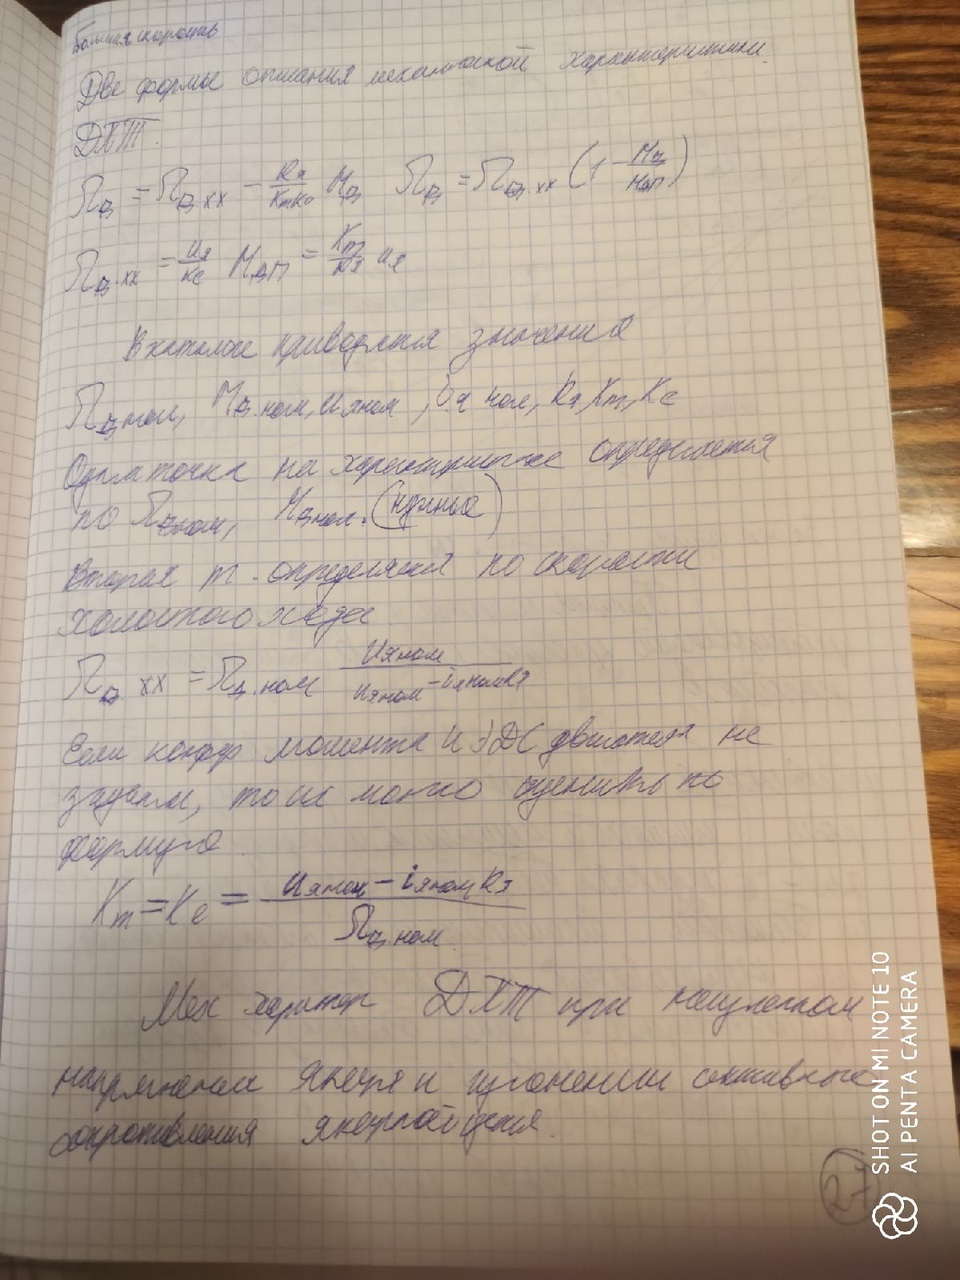 Большая скорость
Две формы описания механической характеристики
ДПТ.
Ω_д = Ω_д.хх − Rя/(KmKe) M_д   Ω_д = Ω_д.хх (1 − M_д/M_дп)
Ω_д.хх = uя/Ke   M_дп = Km/Rя uя
В каталоге приводятся значения
Ω_д ном, M_д.ном, uя ном, iя ном, Rя, Km, Ke
Одна точка на характеристике определяется
по Ω_д ном, M_д ном.
Вторая т. определяется по скорости
холостого хода
Ω_д.хх = Ω_д.ном uя ном/(uя ном − iя ном Rя)
Если коэфф момента и ЭДС двигателя не
заданы, то их можно оценить по
формуле
Km = Ke = (uя ном − iя ном Rя)/Ω_д.ном
Мех характер ДПТ при
напряжении якоря и изменении активные
сопротивления якорной цепи.
27
SHOT ON MI NOTE 10
AI PENTA CAMERA